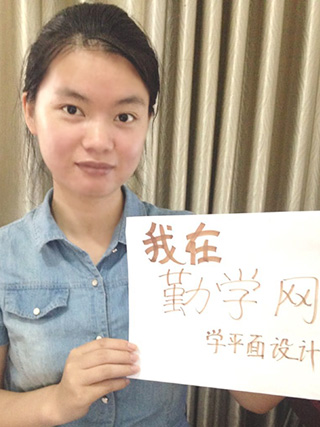 我在
勤学网
学平面设计